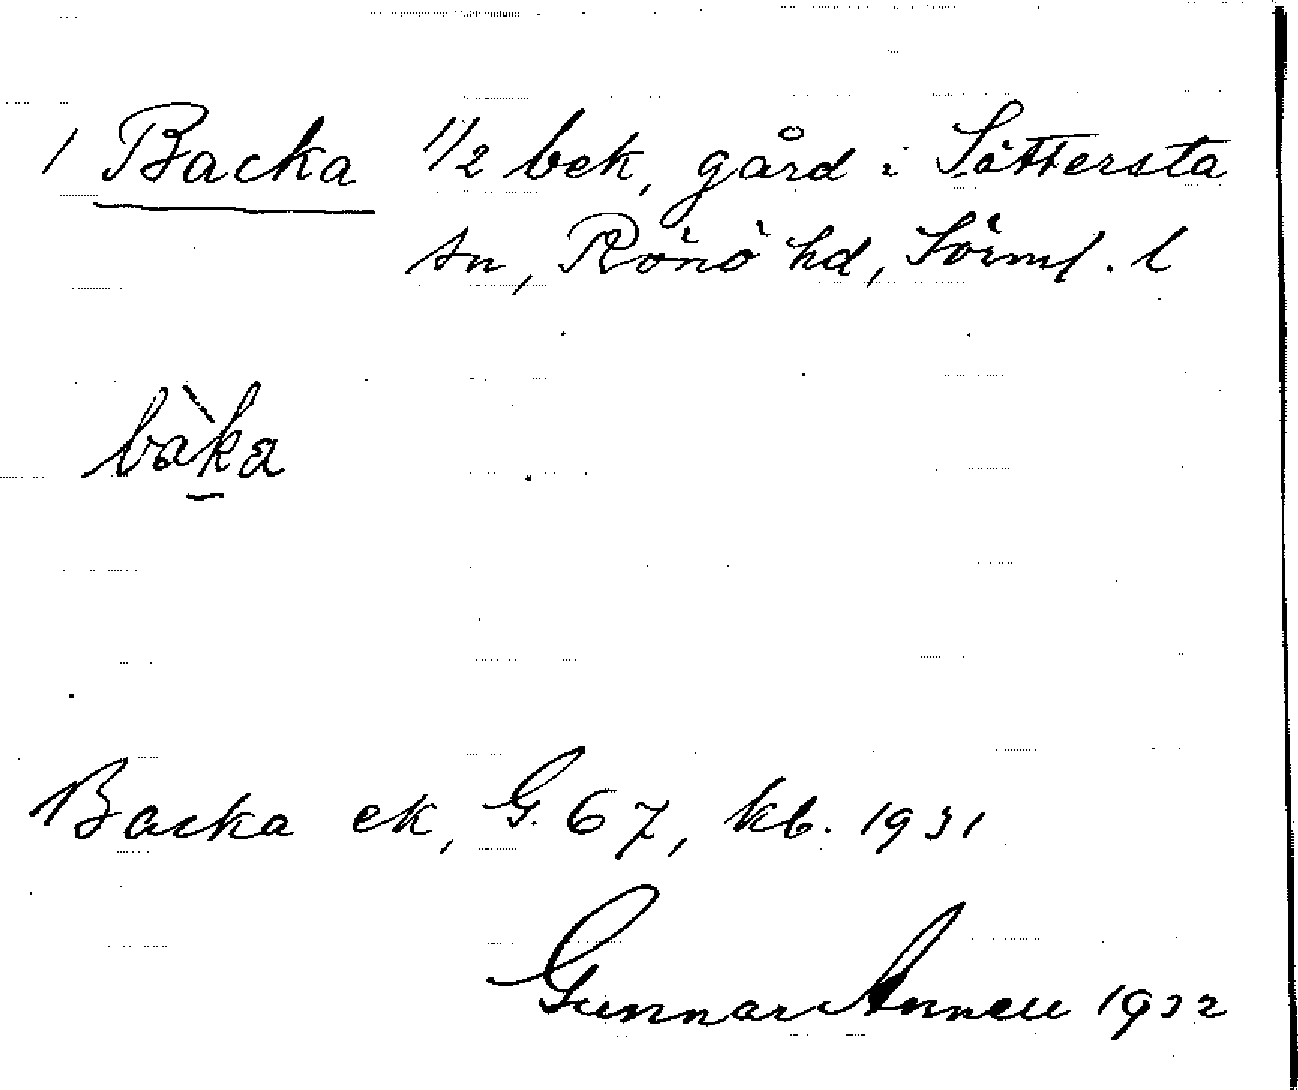 1 Backa 1/2 bek, gård i Sättersta
sn, Rönö hd, Sörml. l
bàka
Backa ek, G. 67, kb. 1931
Gunnar Annell 1932